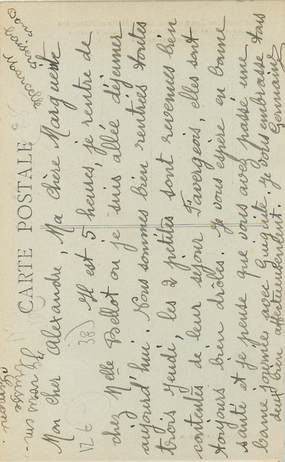 CARTE POSTALE
Mon cher Alexandre, Ma chère Marguerite
Il est 5 heures, je rentre de
chez Melle Bellot où je suis allée déjeuner
aujourd'hui. Nous sommes bien rentrées toutes
trois jeudi, les 2 petites sont revenues bien
contentes de leur séjour Favergeois, elles sont
toujours bien drôles. Je vous espère en bonne
santé et je pense que vous avez passé une
bonne journée avec Guiguite. Je vous embrasse tous
deux bien affectueusement. Germaine